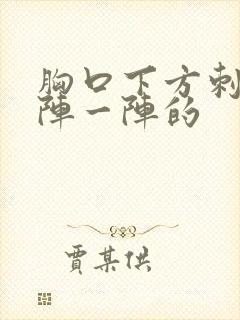 胸口下方刺
陣一陣的
賈某供